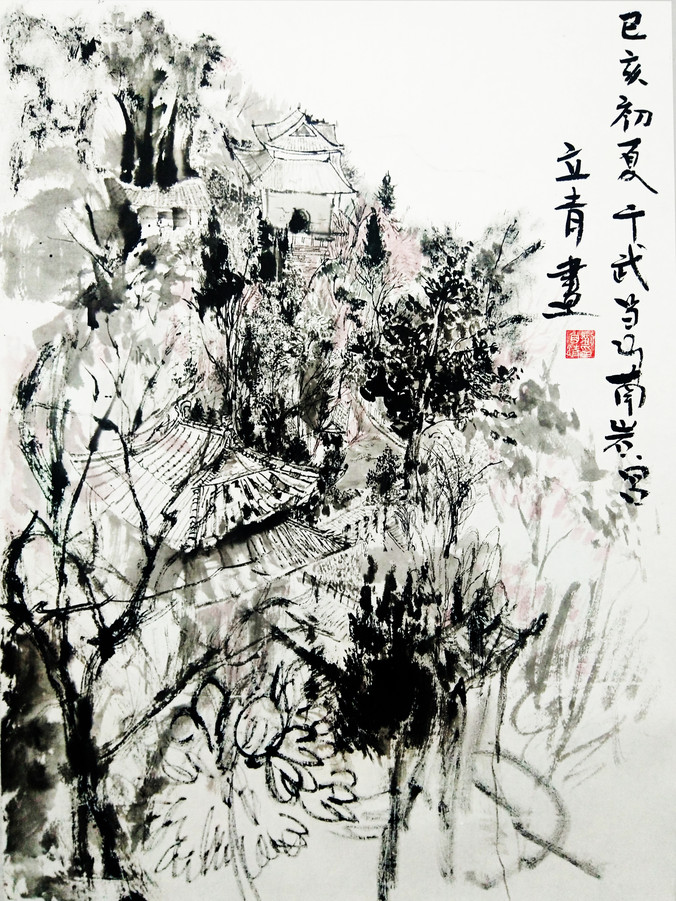 己亥初夏于武当山南岩宫
立青畫